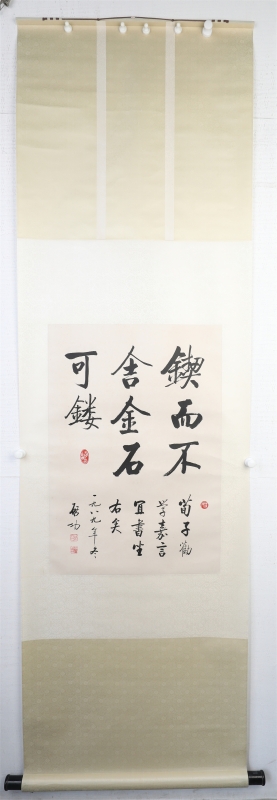 鍥而不
舍金石
可鏤
荀子勸
學嘉言
宜書坐
右矣
一九八九年冬
啟功